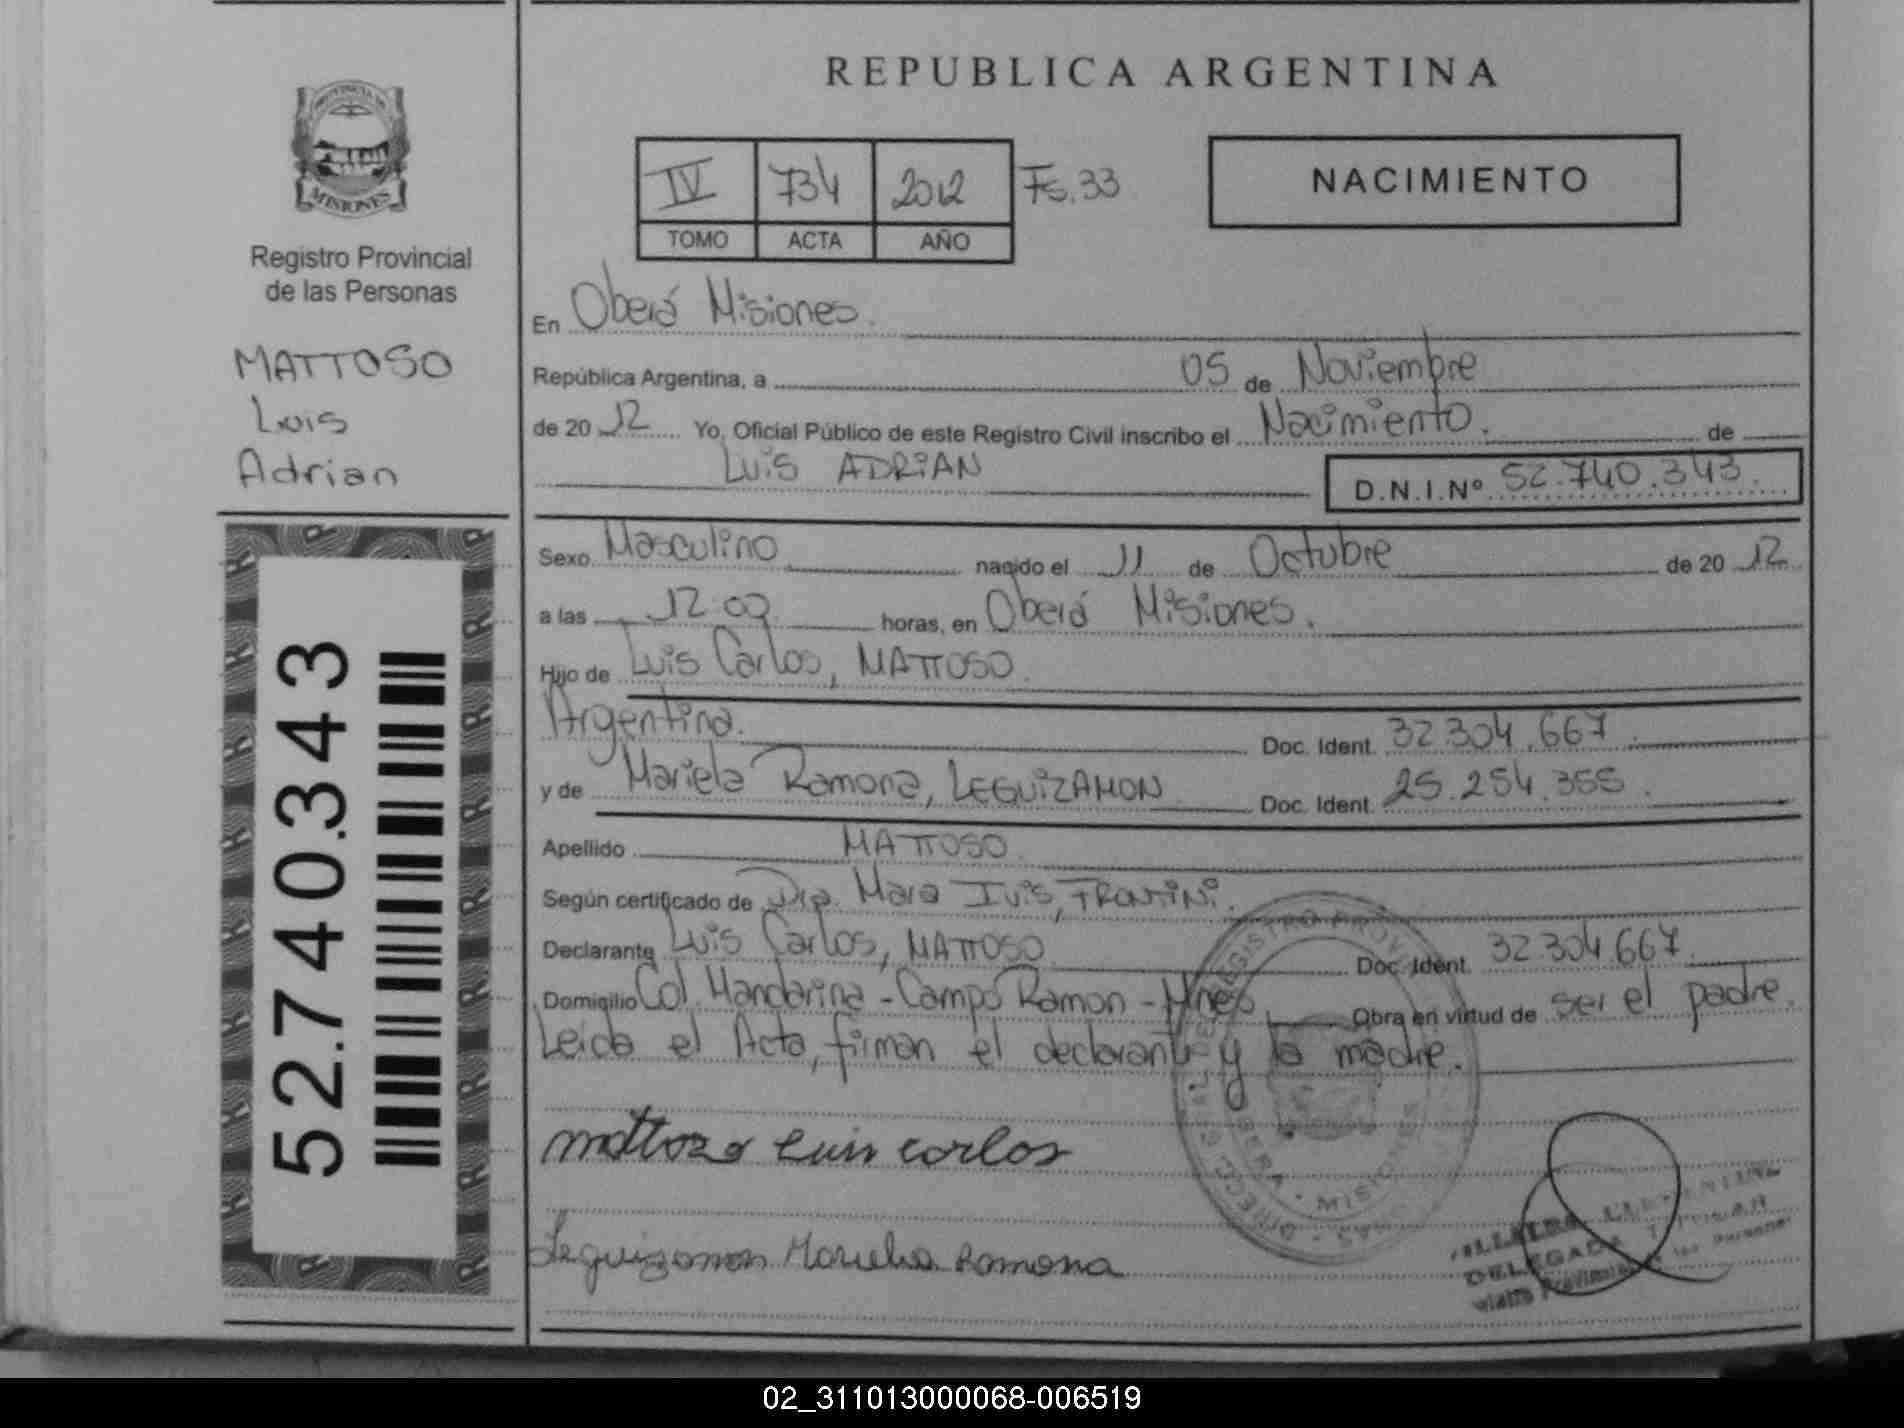 PROVINCIA DE
MISIONES
Registro Provincial
de las Personas
MATTOSO
Luis
Adrian
52.740.343
REPUBLICA ARGENTINA
IV 734 2012 Fs. 33
TOMO ACTA AÑO
NACIMIENTO
En Oberá Misiones.
República Argentina, a 05 de Noviembre
de 20 12 Yo, Oficial Público de este Registro Civil inscribo el Nacimiento. de
LUIS ADRIAN D.N.I.Nº 52.740.343.
Sexo Masculino nacido el 11 de Octubre de 20 12
a las 12:00 horas, en Oberá Misiones.
Hijo de Luis Carlos, MATTOSO.
Argentina. Doc. Ident. 32.304.667.
y de Mariela Ramona, LEGUIZAMON Doc. Ident. 25.254.355.
Apellido MATTOSO.
Según certificado de Dra. Mara Ivis, FRONTINI.
Declarante Luis Carlos, MATTOSO Doc. Ident. 32.304.667.
Domicilio Col. Mandarina - Campo Ramon - Mnes Obra en virtud de ser el padre.
Leída el Acta, firman el declarante y la madre.
mattozo luis carlos
Leguizamon Mariela Ramona
MISIONES
DELEGADA TITULAR
02_311013000068-006519